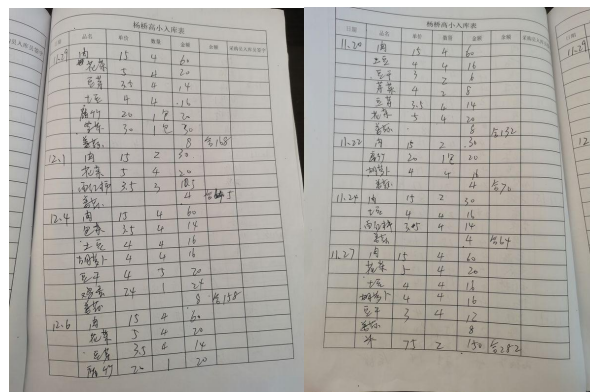 杨桥高小入库表
日期 品名 单价 数量 金额 金额 采购员入库员签字
11.29 肉 15 4 60
花菜 5 4 20
豆芽 3.5 4 14
土豆 4 4 16
腐竹 20 1包 20
30 1包 30
姜蒜 8 合168
12.1 肉 15 2 30
花菜 5 4 20
西红柿 3.5 3
姜蒜 4
12.4 肉 15 4 60
包菜 3.5 4 14
土豆 4 4 16
胡萝卜 4 4 16
豆干 4 5 20
24 1 24
姜蒜 8 合158
12.6 肉 15 4 60
花菜 5 4 20
豆芽 3.5 4 14
腐竹 20 1 20
杨桥高小入库表
日期 品名 单价 数量 金额 金额 采购员入库员签字
11.20 肉 15 4 60
土豆 4 4 16
豆干 3 2 6
芹菜 4 2 8
豆芽 3.5 4 14
花菜 5 4 20
姜蒜 8 合132
11.22 肉 15 2 30
腐竹 20 1包 20
胡萝卜 4 4 16
姜蒜 4 合70
11.24 肉 15 2 30
土豆 4 4 16
西红柿 3.5 4 14
姜蒜 4 合64
11.27 肉 15 4 60
花菜 5 4 20
土豆 4 4 16
胡萝卜 4 4 16
豆干 3 4 12
姜蒜 8
米 75 2 150 合282
11.29